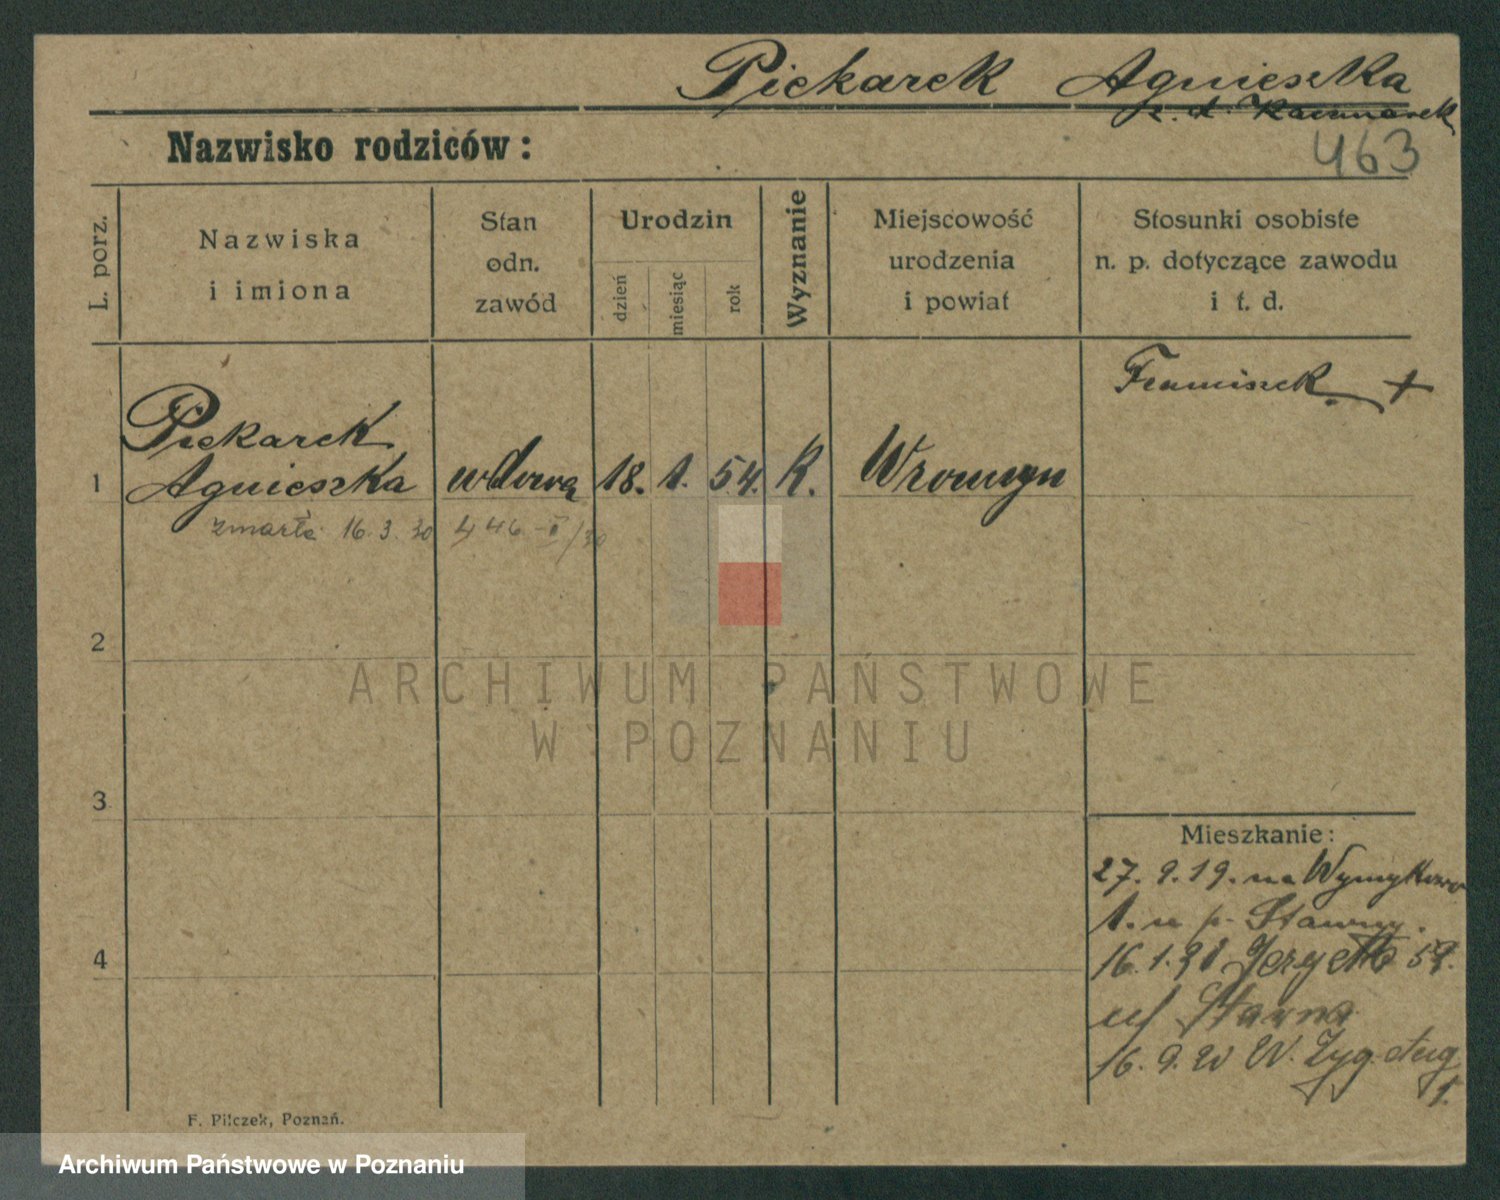 Piekarek Agnieszka
z. d. Kaczmarek
463
Nazwisko rodziców :
L. porz.
Nazwiska
i imiona
Stan
odn.
zawód
Urodzin
dzień
miesiąc
rok
Wyznanie
Miejscowość
urodzenia
i powiat
Stosunki osobiste
n. p. dotyczące zawodu
i t. d.
Franciszek +
Piekarek
1 Agnieszka wdowa 18. 1. 54. K. Wronczyn
zmarła 16. 3. 30 446-II/30
2
ARCHIWUM PAŃSTWOWE
W POZNANIU
3
Mieszkanie :
27. 9. 19. na
1. u p.
4
16. 1. 59.
16. 9.
1.
F. Pilczek, Poznań.
Archiwum Państwowe w Poznaniu